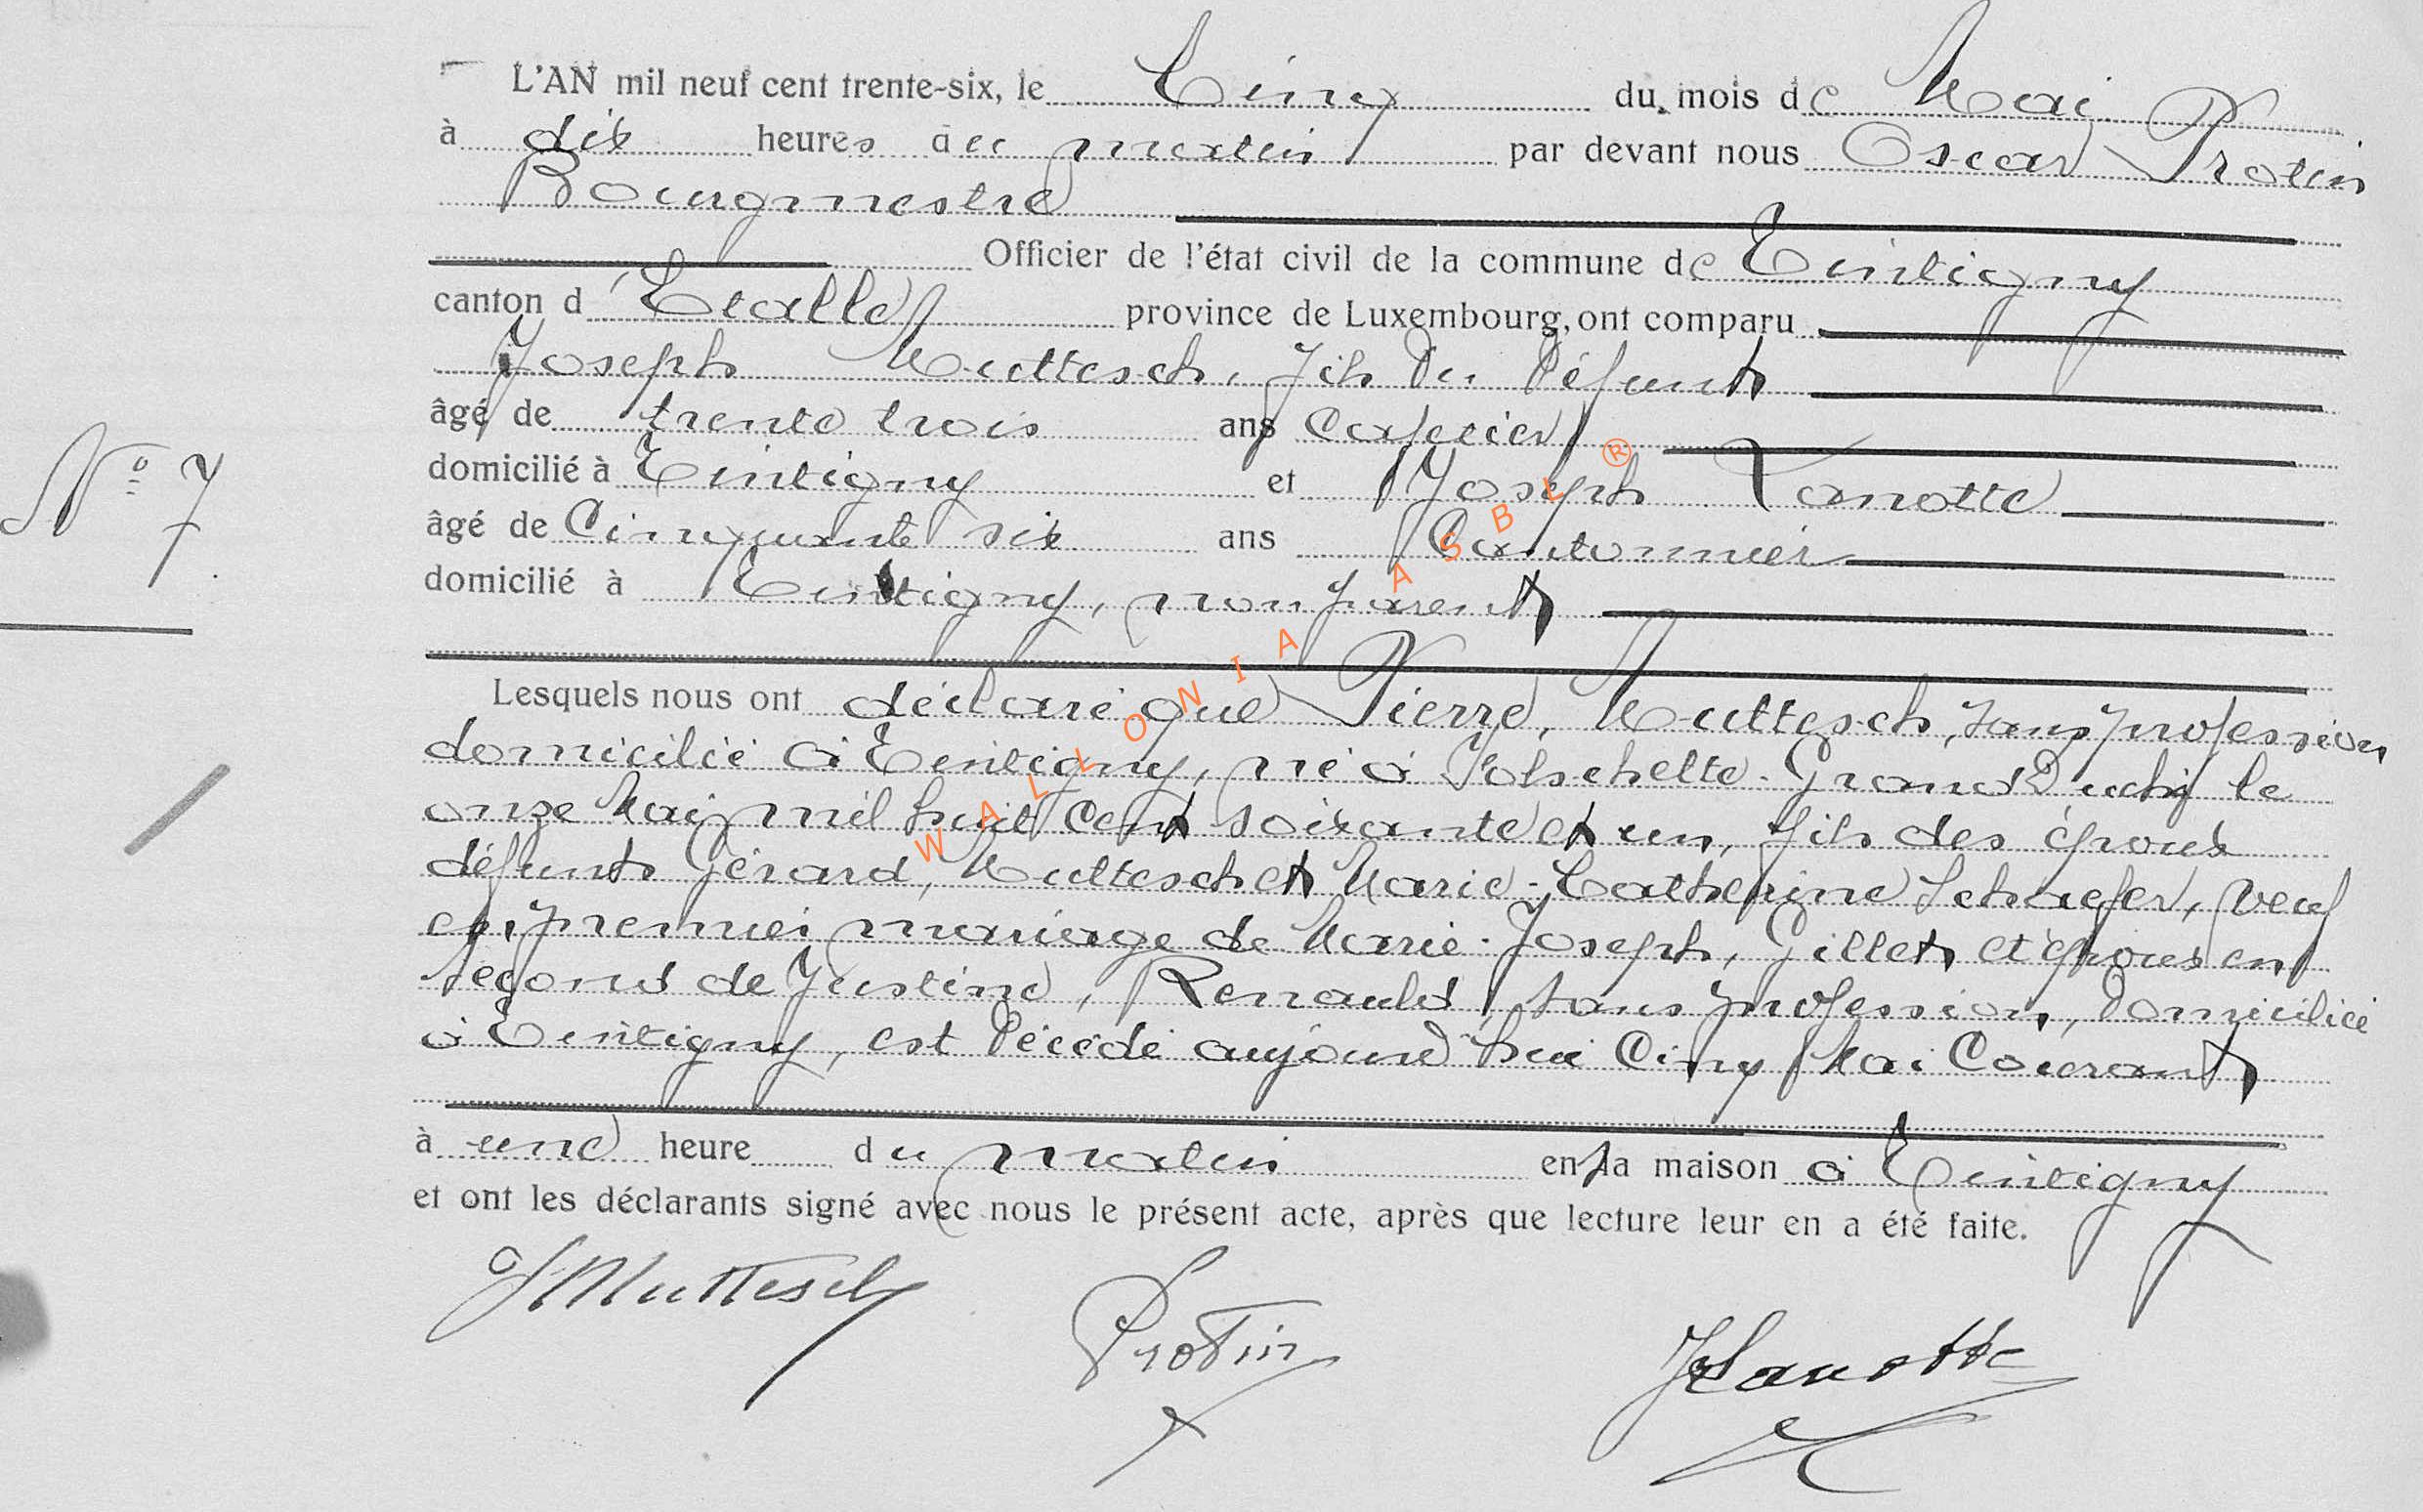 L'AN mil neuf cent trente-six, le Cinq du mois de Mai
à dix heures du matin par devant nous Oscar Protin
Bourgmestre
Officier de l'état civil de la commune de Tintigny
canton d'Etalle province de Luxembourg, ont comparu
Joseph Muttesch, fils du défunt
âgé de trente trois ans Cafetier
domicilié à Tintigny et Joseph Lanotte
âgé de Cinquante six ans Cantonnier
domicilié à Tintigny, non parent
N° 7
Lesquels nous ont déclaré que Pierre, Muttesch, sans profession
domicilié à Tintigny, né à Folschette-Grand Duché le
onze Mai mil huit cent soixante et un, fils des époux
défunts Gérard, Muttesch et Marie-Catherine Schaefer, veuf
en premier mariage de Marie-Joseph, Gillet et époux en
second de Justine, Renauld, sans profession, domiciliée
à Tintigny, est décédé aujourd'hui Cinq Mai Courant
à une heure du matin en sa maison à Tintigny
et ont les déclarants signé avec nous le présent acte, après que lecture leur en a été faite.
J Muttesch Protin J Lanotte
WALLONIA ASBL ®